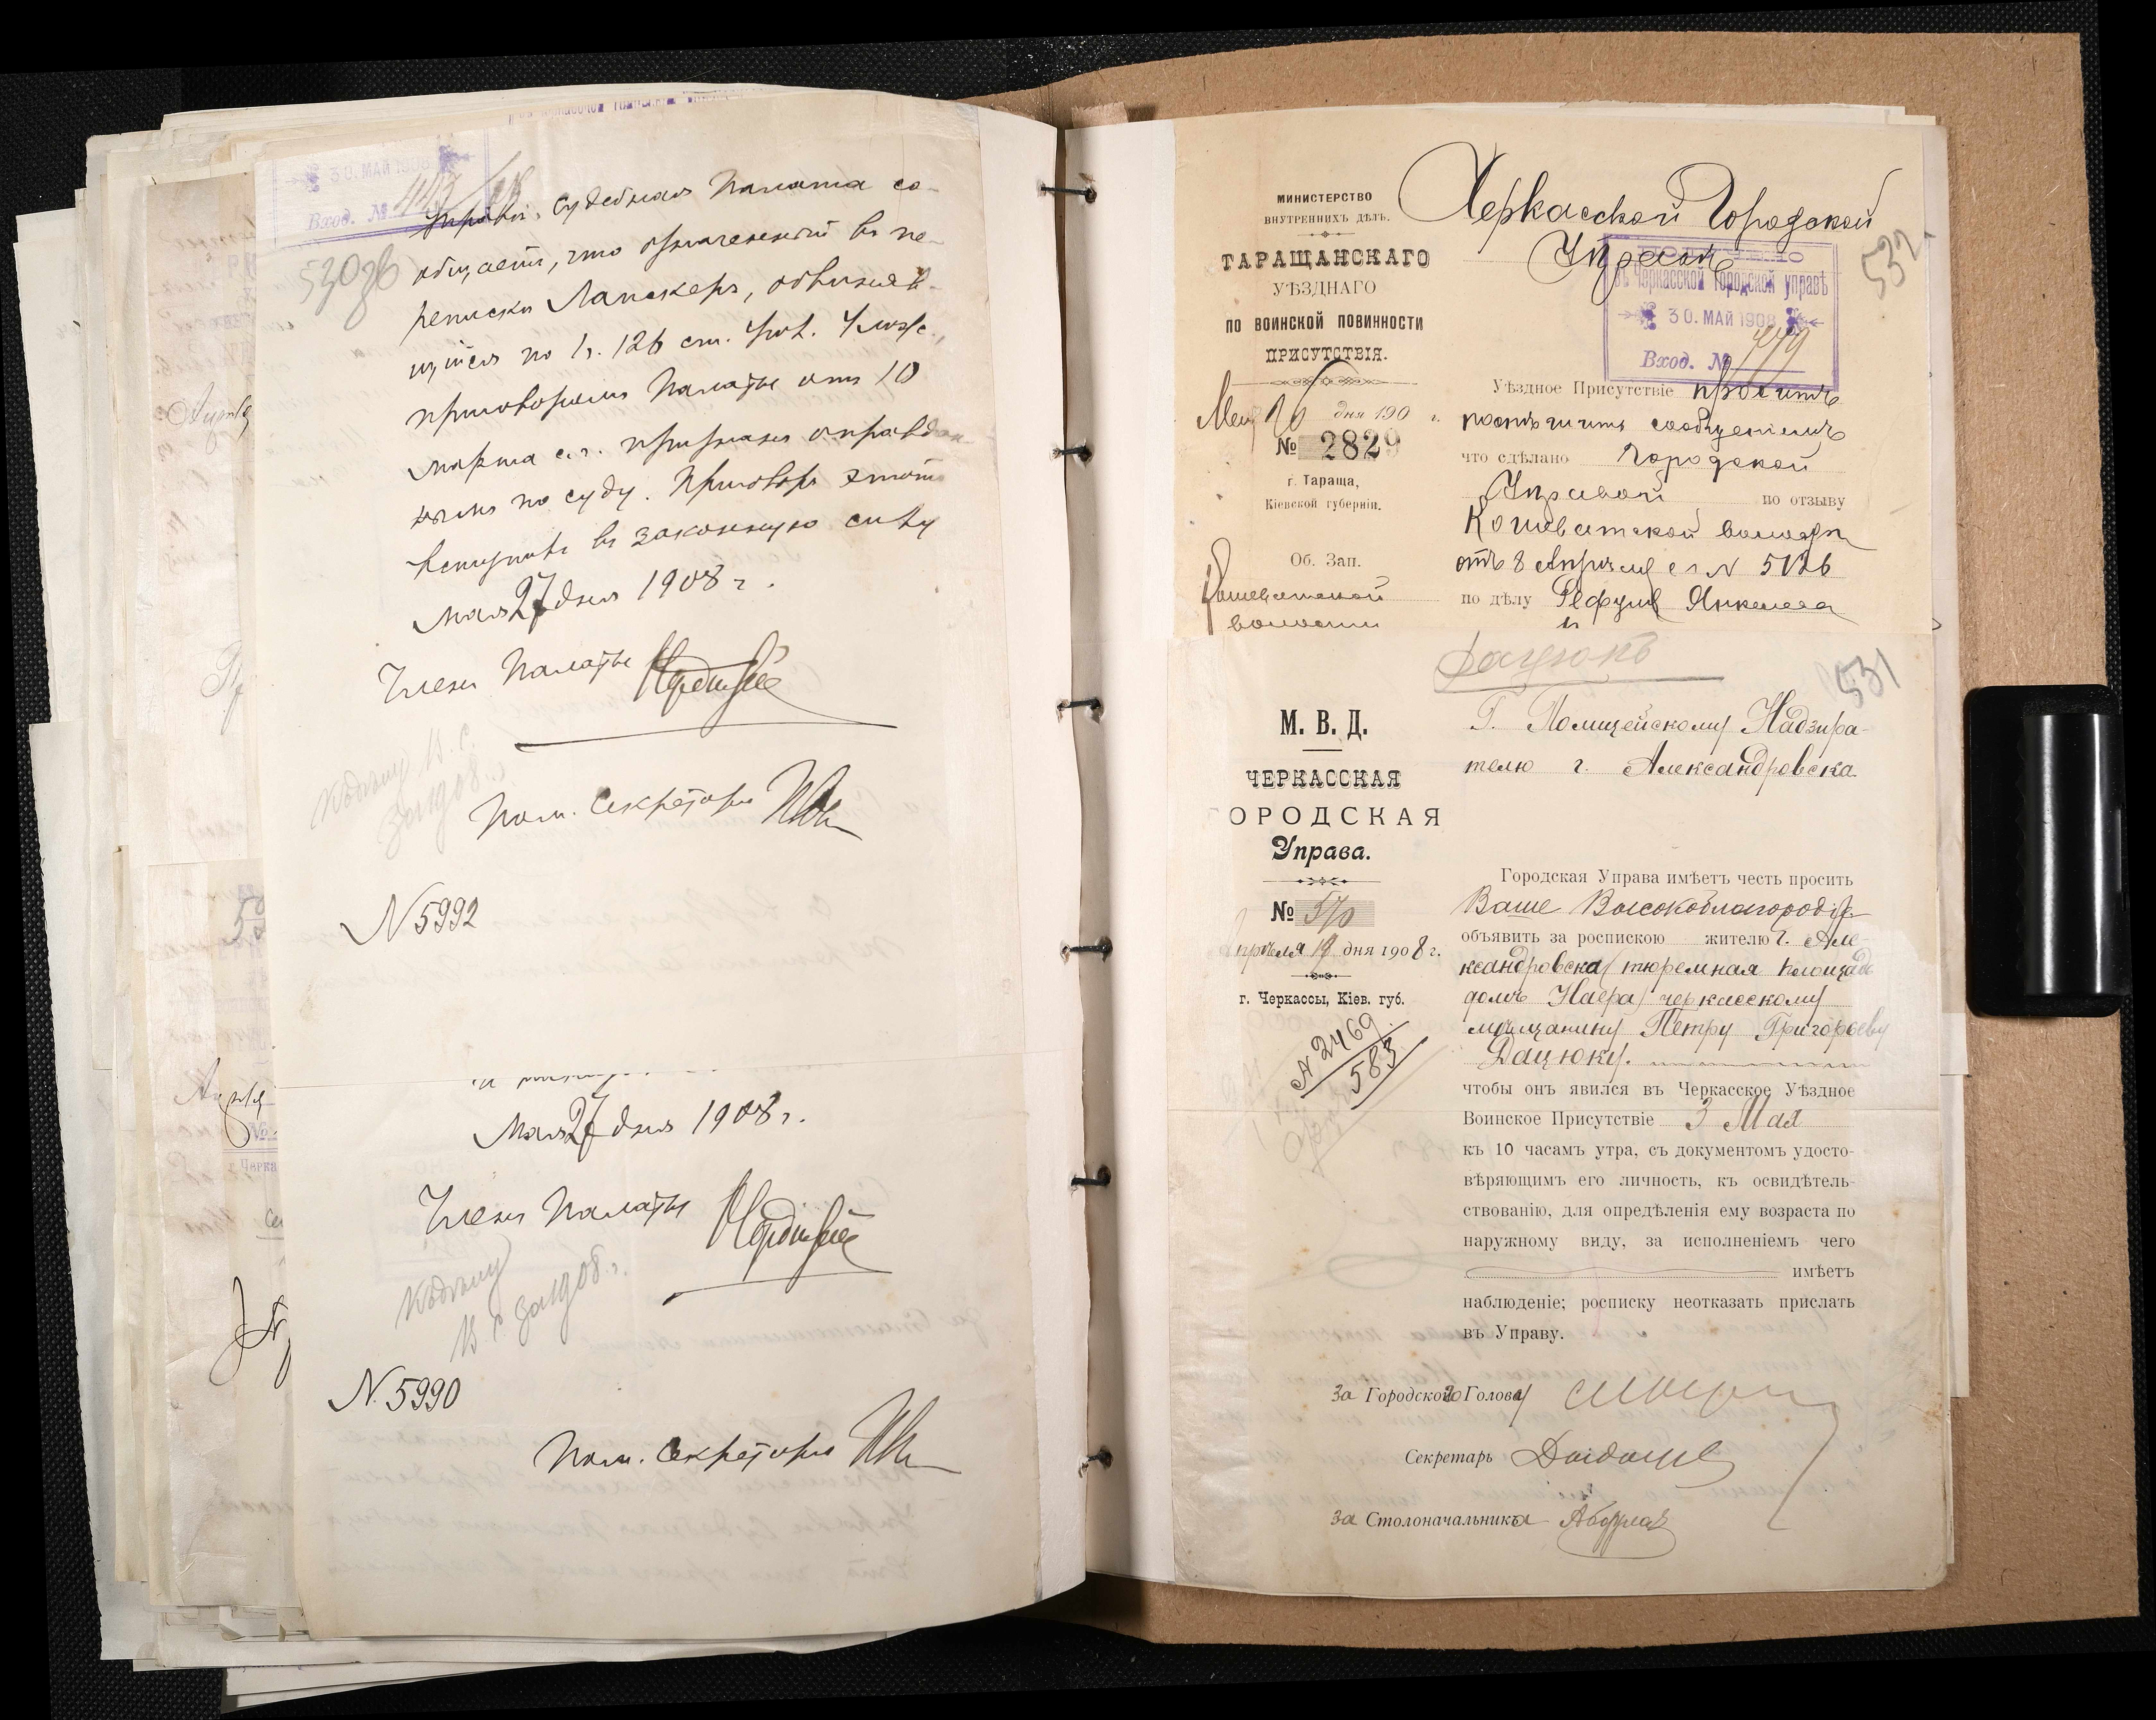 30. МАЙ 1908
Вход. № 443
530 об
Управы, Судебная Палата со-
общаетъ, что означенный въ пе-
репискѣ Ланскеръ, обвиняв-
шійся по 1 ч. 126 ст. Угол. Улож.,
приговоромъ Палаты отъ 10
марта с.г. признанъ оправдан-
нымъ по суду. Приговоръ этотъ
вступилъ въ законную силу
мая 27 дня 1908 г.
Членъ Палаты
Пом. Секретаря
N 5992
Мая 27 дня 1908 г.
Членъ Палаты
за 1908 г.
N 5990
Пом. Секретаря
МИНИСТЕРСТВО
ВНУТРЕННИХЪ ДѢЛЪ.
ТАРАЩАНСКАГО
УѢЗДНАГО
ПО ВОИНСКОЙ ПОВИННОСТИ
ПРИСУТСТВІЯ.
дня 190 г.
№ 2829
г. Тараща,
Кіевской губерніи.
Об. Зап.
Кошеватской
волости
Черкасской Городской
Управѣ
532
ПОЛУЧЕНО
въ Черкасской Городской управѣ
30. МАЙ 1908
Вход. №
Уѣздное Присутствіе проситъ
почтить сообщеніемъ
что сдѣлано Городской
Управой по отзыву
Кошеватской волости
отъ 8 Апрѣля с г N 5126
по дѣлу Рефуля Янкелева
Дацюкъ
531
М. В. Д.
ЧЕРКАССКАЯ
ГОРОДСКАЯ
Управа.
№ 570
Апрѣля 19 дня 1908 г.
г. Черкассы, Кіев. губ.
N 2469
583
Г. Полицейскому Надзира-
телю г. Александровска
Городская Управа имѣетъ честь просить
Ваше Высокоблагородіе
объявить за роспискою жителю г. Але-
ксандровска (тюремная площадь
домъ Наера) черкасскому
мѣщанину Петру Григорьеву
Дацюку.
чтобы онъ явился въ Черкасское Уѣздное
Воинское Присутствіе 3 Мая
къ 10 часамъ утра, съ документомъ удосто-
вѣряющимъ его личность, къ освидѣтель-
ствованію, для опредѣленія ему возраста по
наружному виду, за исполненіемъ чего
имѣетъ
наблюденіе; росписку неотказать прислать
въ Управу.
За Городского Голову
Секретарь
За Столоначальника